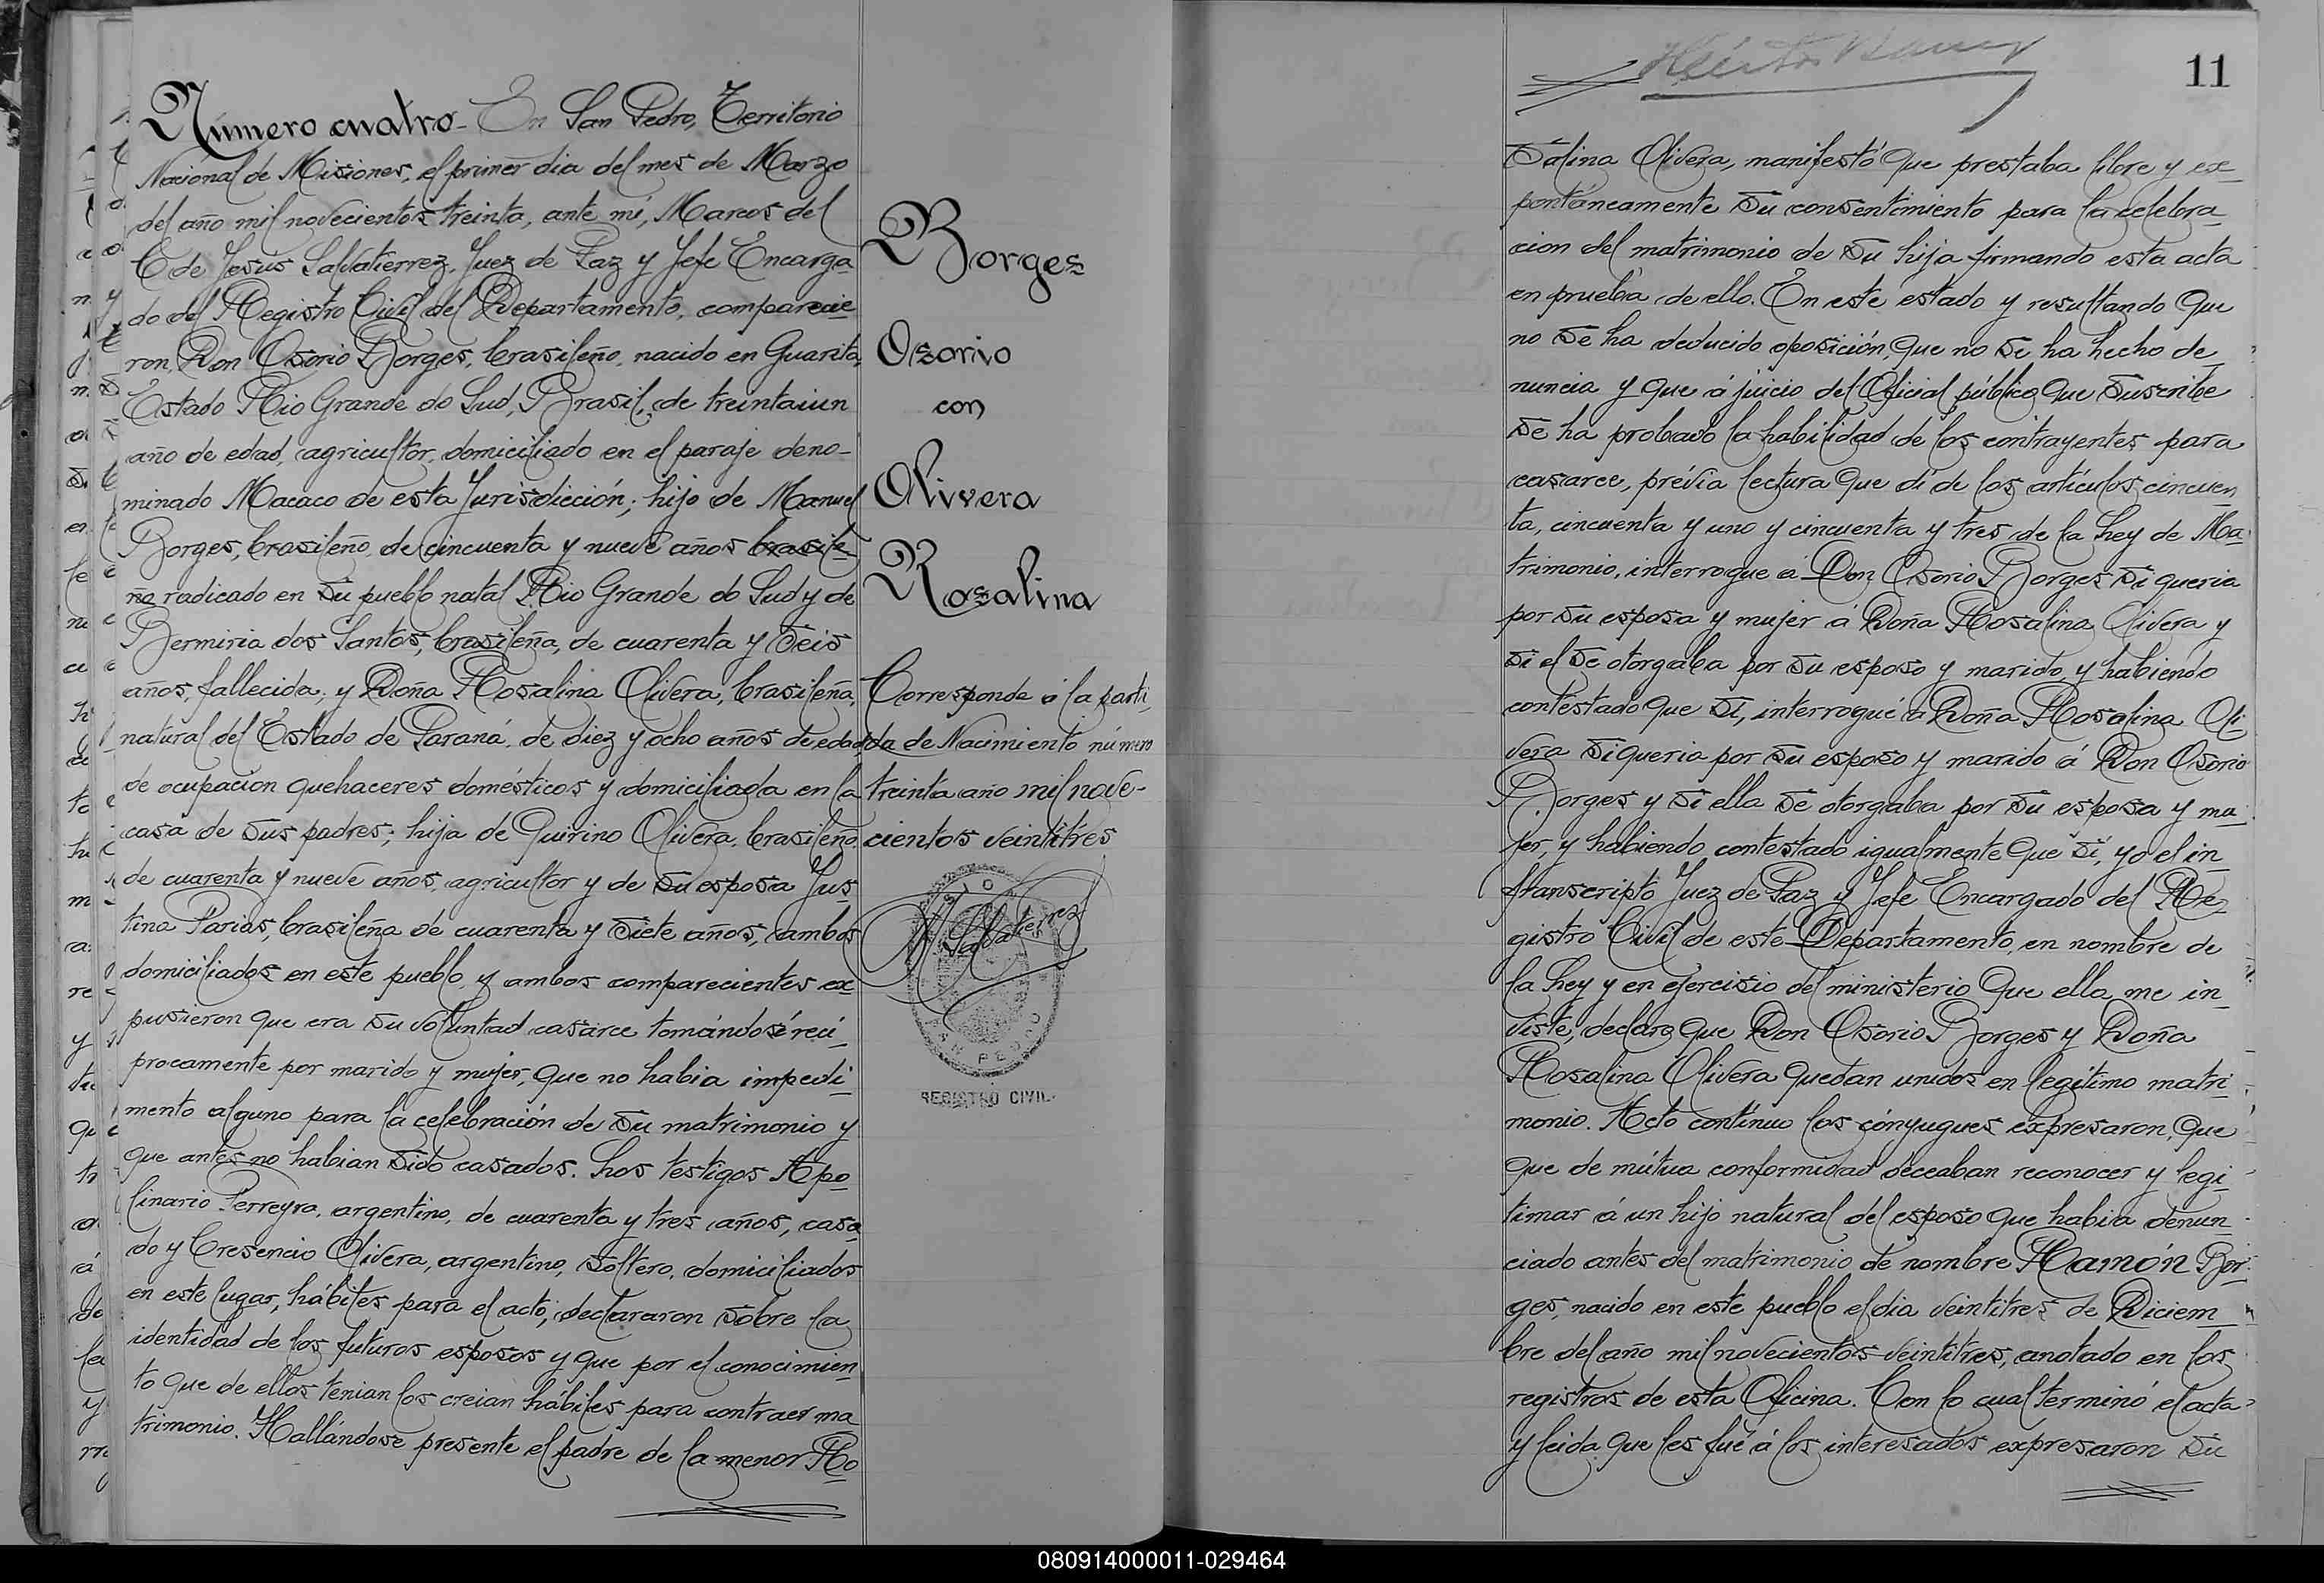 Número cuatro - En San Pedro, Territorio
Nacional de Misiones, el primer dia del mes de Marzo
del año mil novecientos treinta, ante mi, Marcos del
C de Jesús Salvatierrez, Juez de Paz y Jefe Encarga
do del Registro Civil del Departamento, comparecie
ron, Don Osorio Borges, brasileño, nacido en Guarita,
Estado Rio Grande do Sud, Brasil, de treintaiun
año de edad, agricultor, domiciliado en el paraje deno-
minado Macaco de esta Jurisdicción; hijo de Manuel
Borges, brasileño, de cincuenta y nueve años brasile
ño radicado en su pueblo natal Rio Grande do Sud y de
Bermiria dos Santos, brasileña, de cuarenta y seis
años, fallecida; y Doña Rosalina Olivera, brasileña,
natural del Estado de Paraná, de diez y ocho años de edad
de ocupacion quehaceres domésticos y domiciliada en la
casa de sus padres; hija de Quirino Olivera, brasileño
de cuarenta y nueve años, agricultor y de su esposa Jus
tina Farias, brasileña de cuarenta y siete años, ambos
domiciliados en este pueblo y ambos comparecientes ex
pusieron que era su voluntad casarce tomándosé reci
procamente por marido y mujer, que no habia impedi
mento alguno para la celebración de su matrimonio y
que antes no habian sido casados. Los testigos Apo
linario Ferreyra, argentino, de cuarenta y tres años, casa
do y Cresencio Olivera, argentino, soltero, domiciliados
en este lugar, hábiles para el acto; declararon sobre la
identidad de los futuros esposos y que por el conocimien
to que de ellos tenian los creian hábiles para contraer ma
trimonio. Hallándose presente el padre de la menor Ro
Borges
Osorio
con
Olivera
Rosalina
Corresponde á la parti
da de Nacimiento número
treinta año mil nove-
cientos veintitres
M Salvatierrez
SAN PEDRO
REGISTRO CIVIL
11
salina Olivera, manifestó que prestaba libre y ex
pontáneamente su consentimiento para la celebra
cion del matrimonio de su hija firmando esta acta
en prueba de ello. En este estado y resultando que
no se ha deducido oposición, que no se ha hecho de
nuncia y que á juicio del Oficial público que suscribe
se ha probado la habilidad de los contrayentes para
casarce, prévia lectura que di de los artículos cincuen
ta, cincuenta y uno y cincuenta y tres de la Ley de Ma
trimonio, interrogue á Don Osorio Borges si queria
por su esposa y mujer á Doña Rosalina Olivera y
si el se otorgaba por su esposo y marido, y habiendo
contestado que si, interrogué á Doña Rosalina Oli
vera si queria por su esposo y marido á Don Osorio
Borges y si ella se otorgaba por su esposa y mu
jer, y habiendo contestado igualmente que si, yo el in
franscripto Juez de Paz y Jefe Encargado del Re
gistro Civil de este Departamento, en nombre de
la Ley y en ejercisio del ministerio que ella me in
viste, declaro que Don Osorio Borges y Doña
Rosalina Olivera quedan unidos en legítimo matri
monio. Acto continuo los cónyugues expresaron, que
que de mútua conformidad deceaban reconocer y legi
timar á un hijo natural del esposo que habia denun
ciado antes del matrimonio de nombre Ramón Bor
ges, nacido en este pueblo el dia veintitres de Diciem
bre del año mil novecientos veintitres, anotado en los
registros de esta Oficina. Con lo cual terminó el acta
y leida que les fué á los interesados expresaron su
080914000011-029464